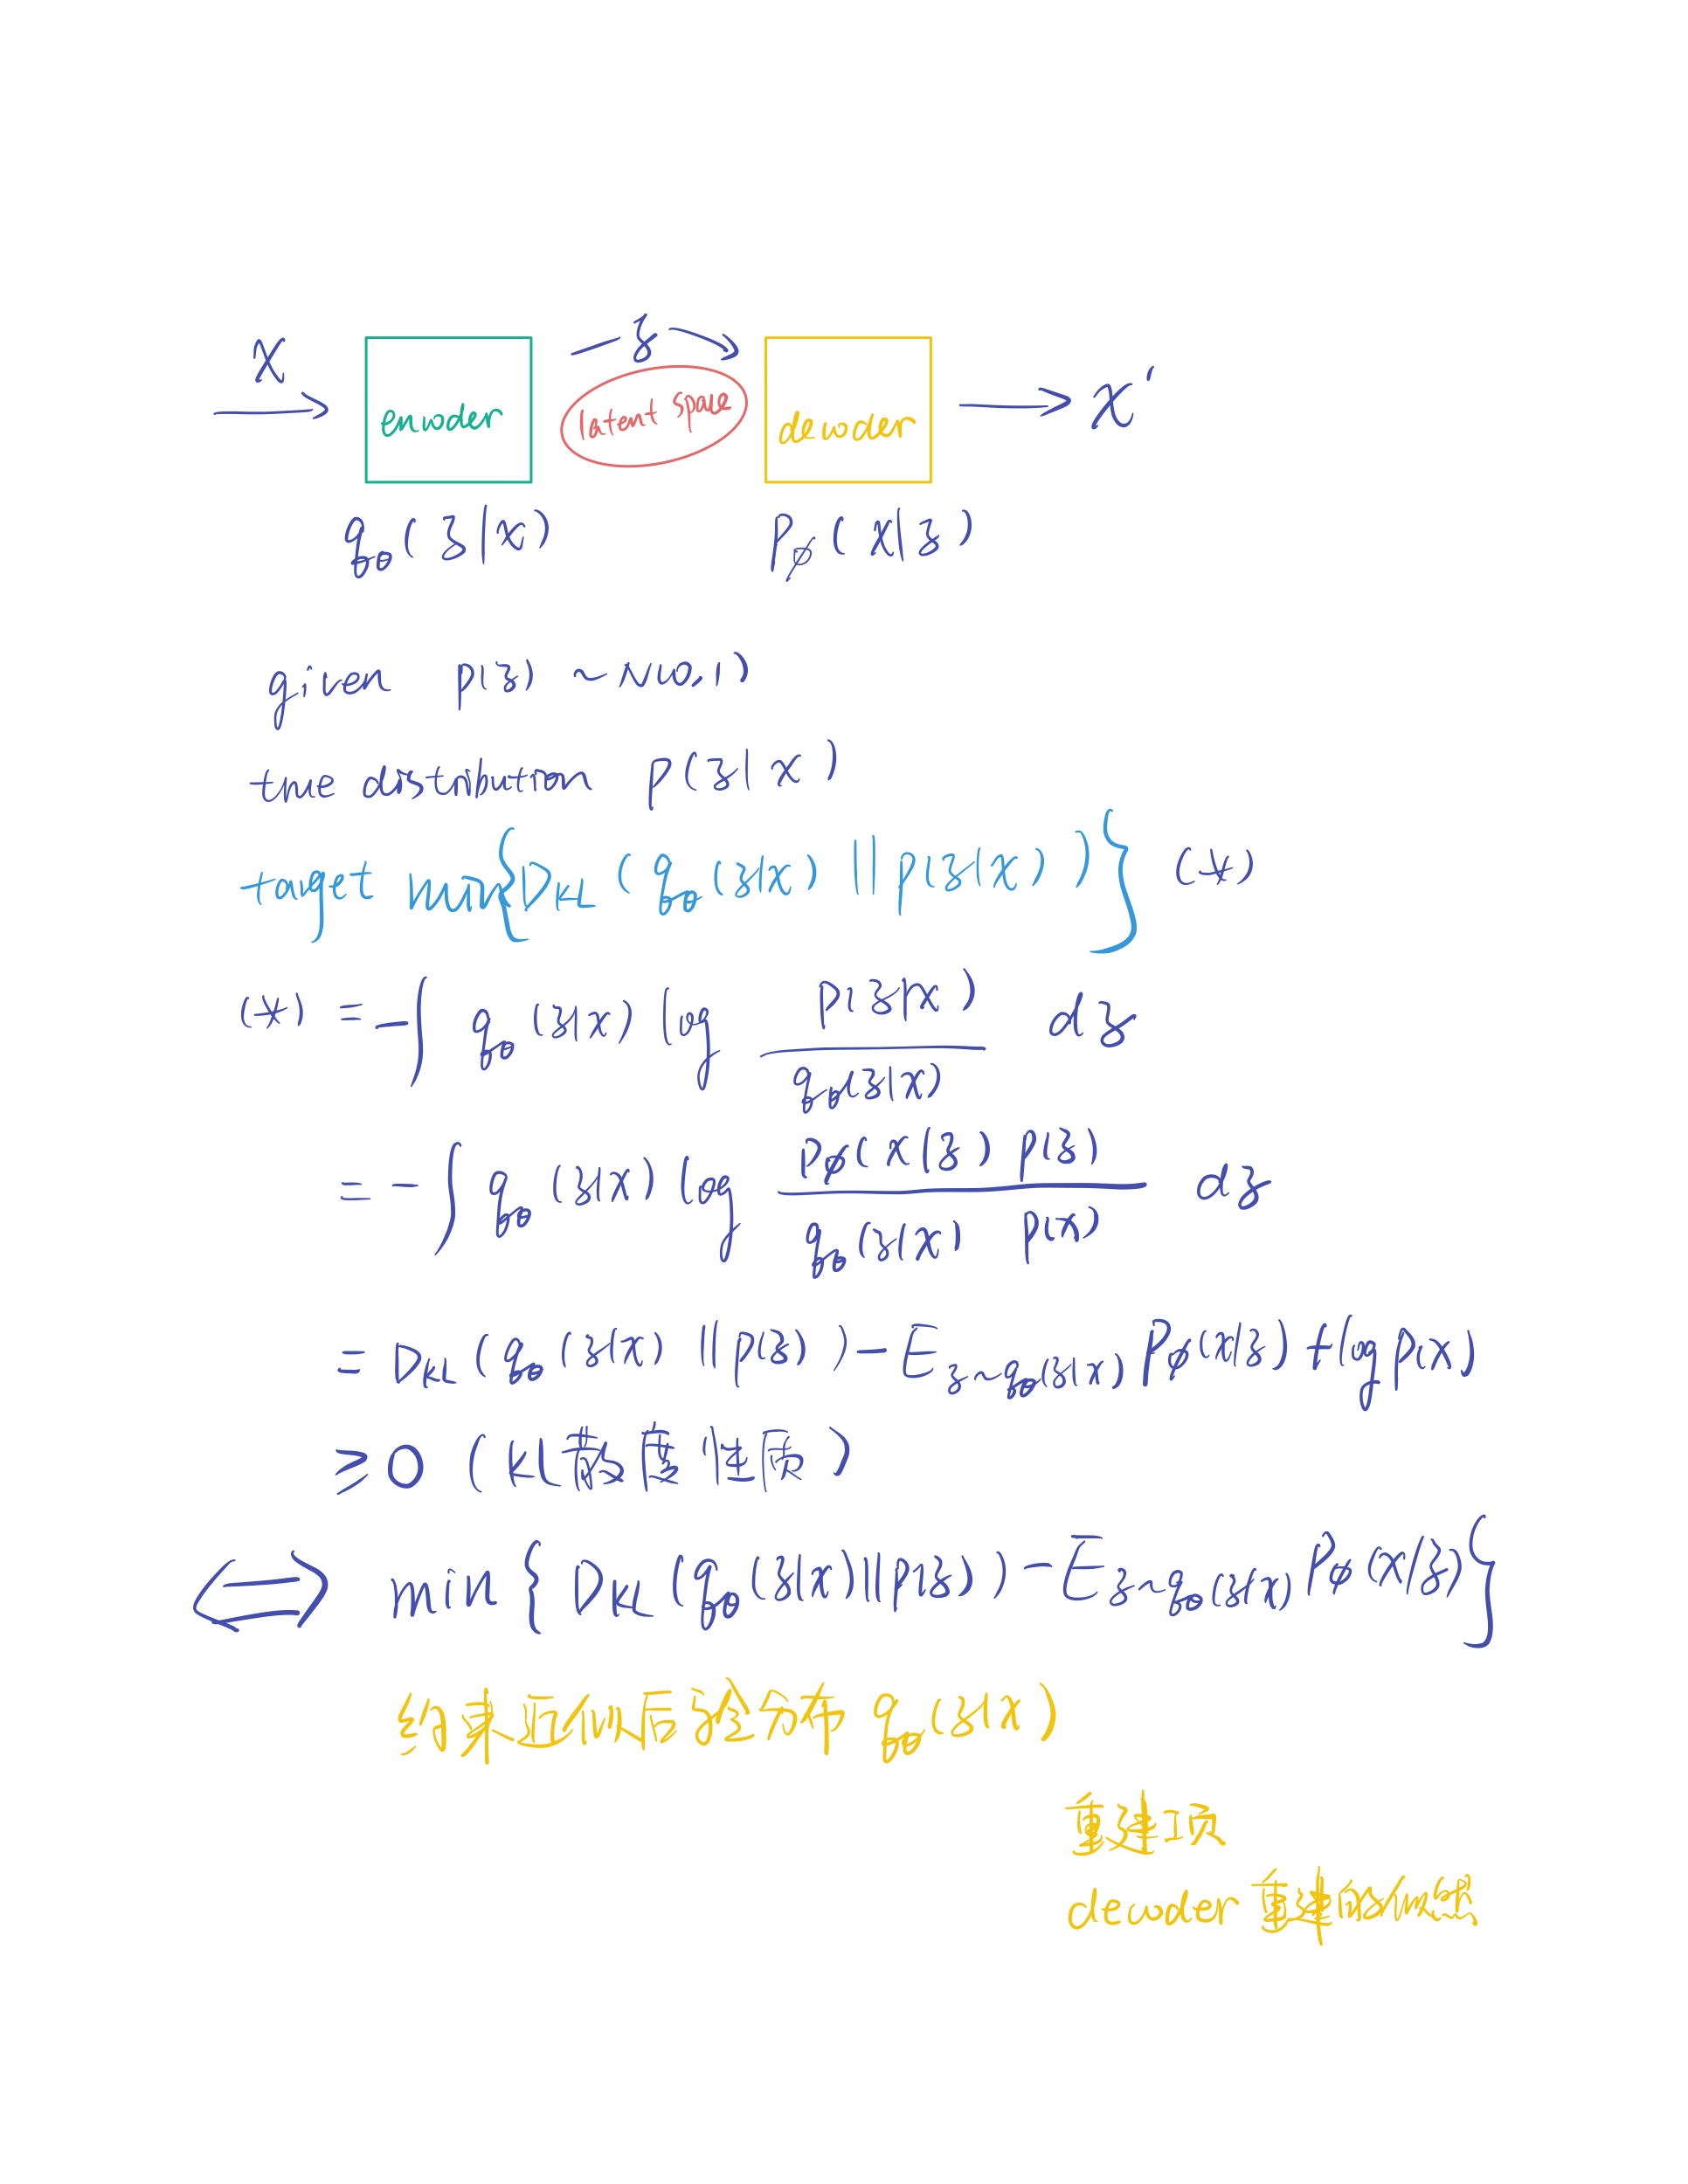 x z x'
encoder latent space decoder
q_θ(z|x) p_φ(x|z)
given p(z) ~ N(0,1)
the distribution p(z|x)
target min{D_KL(q_θ(z|x) || p(z|x))} (*)
(*) = -∫ q_θ(z|x) log p(z|x) / q_θ(z|x) dz
= -∫ q_θ(z|x) log p_φ(x|z) p(z) / q_θ(z|x) p(x) dz
= D_KL(q_θ(z|x) || p(z)) - E_{z~q_θ(z|x)} p_φ(x|z) + log p(x)
≥ 0 (KL散度性质)
⟺ min{D_KL(q_θ(z|x) || p(z)) - E_{z~q_θ(z|x)} p_φ(x|z)}
约束近似后验分布 q_θ(z|x)
重建项
decoder 重建的效果